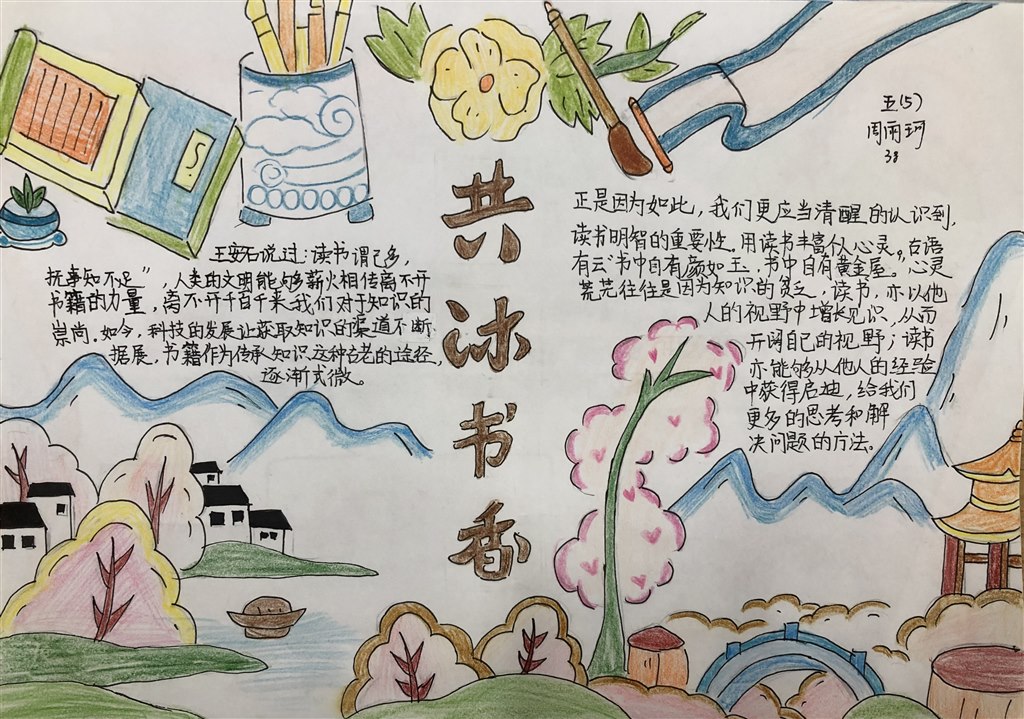 共沐书香
五(5)
周雨珂
38
王安石说过:读书谓已多,
抚事知不足”,人类的文明能够薪火相传离不开
书籍的力量,离不开千百千来我们对于知识的
崇尚.如今,科技的发展让获取知识的渠道不断
据展,书籍作为传承知识这种古老的途径,
逐渐式微。
正是因为如此,我们更应当清醒的认识到,
读书明智的重要性.用读书丰富似心灵。古语
有云“书中自有颜如玉,书中自有黄金屋。心灵
荒芜往往是因为知识的贫乏,读书,亦以他
人的视野中增长见识,从而
开阔自己的视野;读书
亦能够从他人的经验
中获得启迪,给我们
更多的思考和解
决问题的方法。